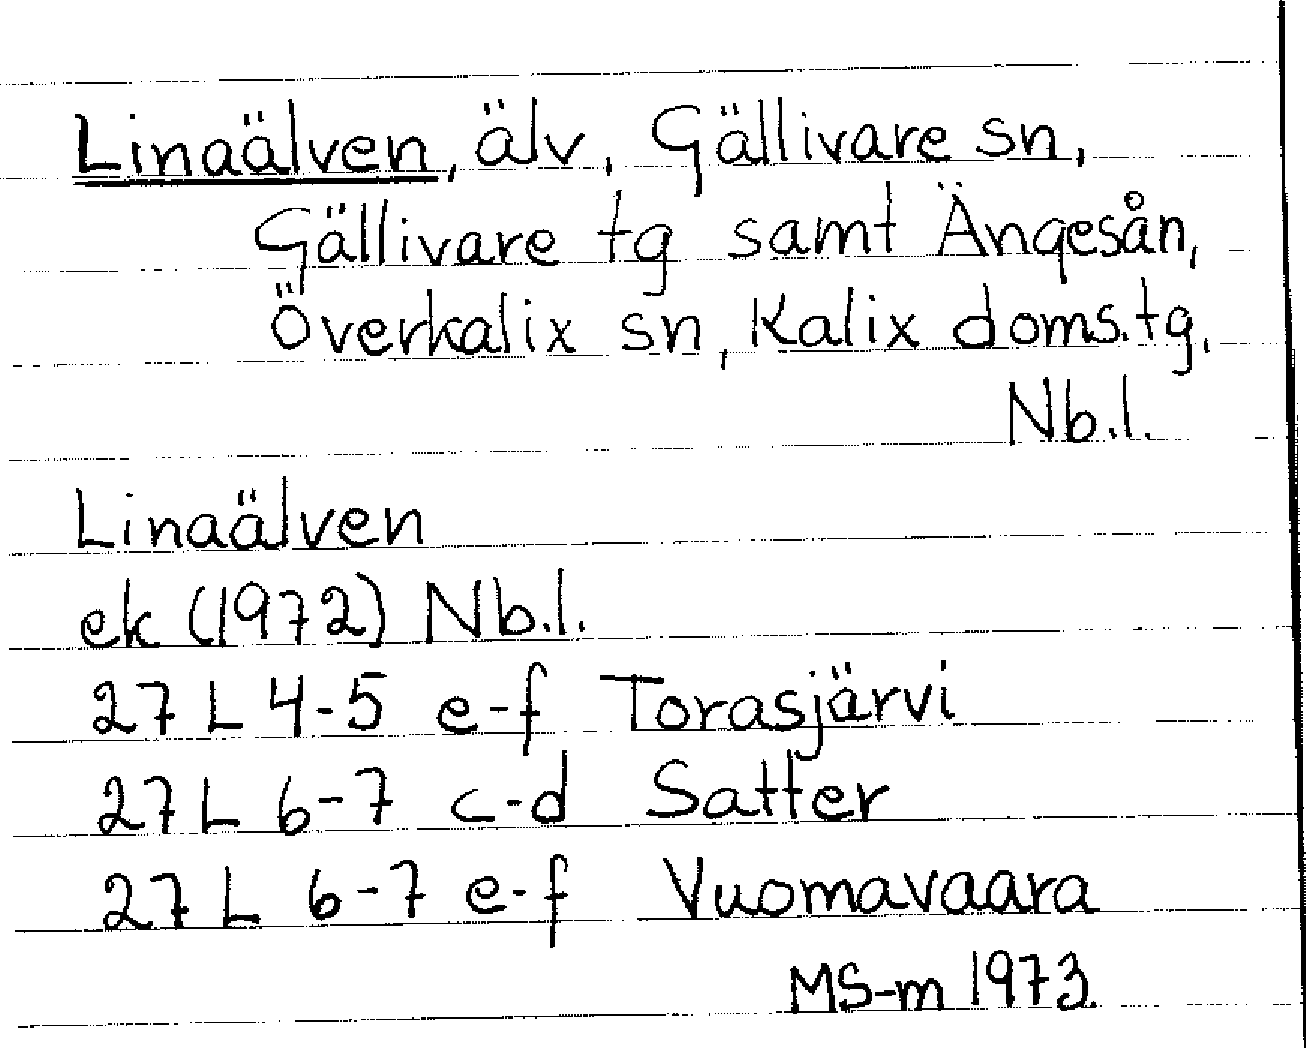 Linaälven, älv, Gällivare sn,
Gällivare tg samt Ängesån,
Överkalix sn, Kalix doms.tg,
Nb.l.
Linaälven
ek (1972) Nb.l.
27 L 4-5 e-f Torasjärvi
27 L 6-7 c-d Satter
27 L 6-7 e-f Vuomavaara
MS-m 1973